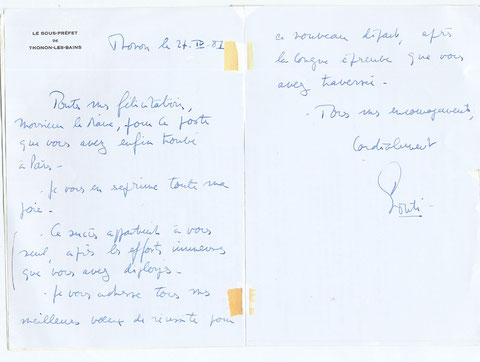 LE SOUS-PRÉFET
DE
THONON-LES-BAINS
Thonon le 21. IV. 81
Toutes mes félicitations,
Monsieur le Maire, pour ce poste
que vous avez enfin trouvé
à Paris -
- Je vous en exprime toute ma
joie -
- Ce succès appartient à vous
seul, après les efforts immenses
que vous avez déployés -
- Je vous adresse tous mes
meilleurs voeux de réussite pour
ce nouveau départ, après
la longue épreuve que vous
avez traversée -
- Tous mes encouragements,
Cordialement